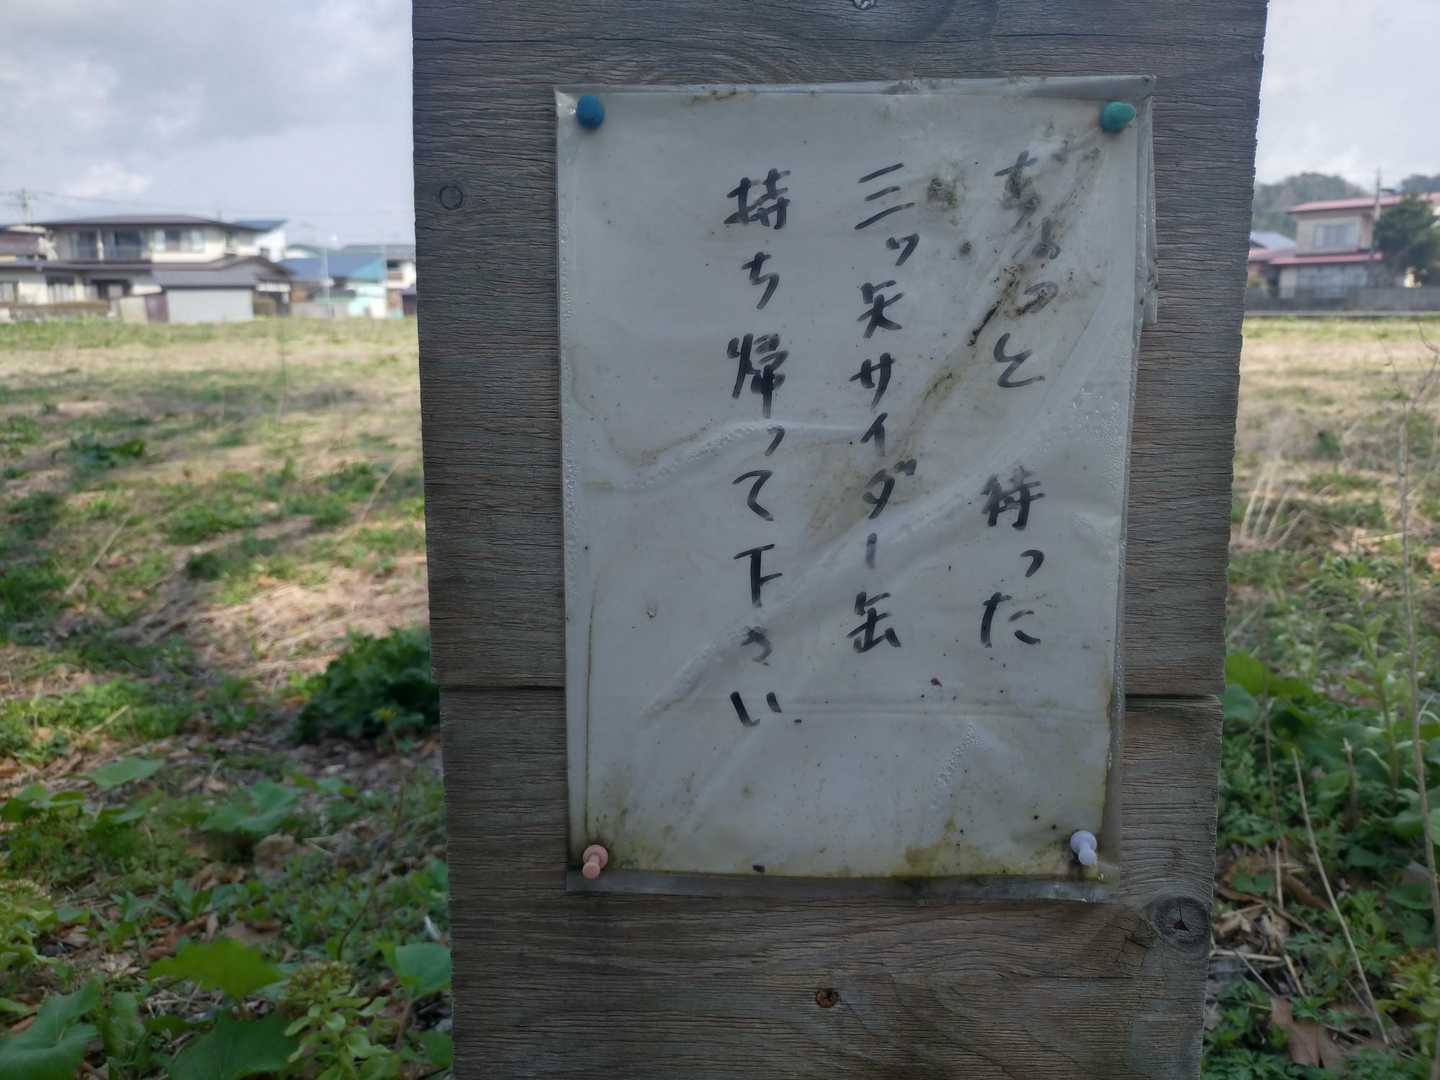 ちょっと 待った
三ッ矢サイダー缶
持ち帰って下さい